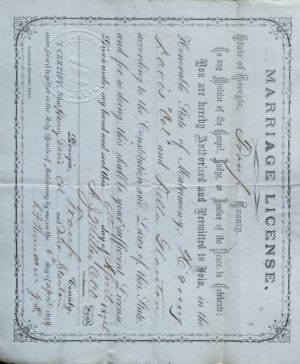 MARRIAGE LICENSE.
State of Georgia, Troup County.
To any Minister of the Gospel, Judge, or Justice of the Peace, to Celebrate:
You are hereby Authorized and Permitted to Join, in the
Honorable State of Matrimony, Henry
Davis Col and Della Stanton
according to the Constitution and Laws of this State,
and for so doing, this shall be your sufficient License.
Given under my hand and seal this
day of April 187
Seal
Georgia, Troup County.
I CERTIFY, That Henry Davis Col and Della Stanton
were joined together in the Holy Bonds of Matrimony by me, on the day of April 1874
J. P.